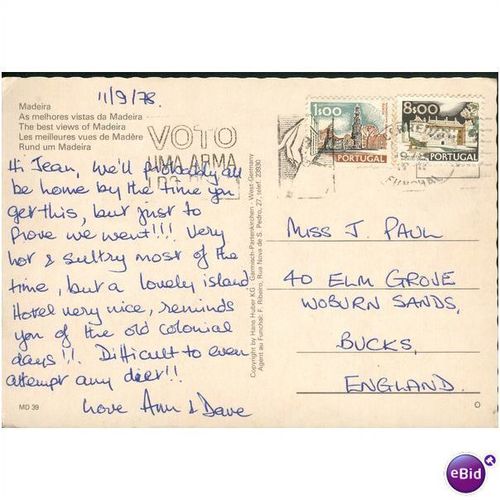 11/9/78.
Madeira
As melhores vistas da Madeira
The best views of Madeira
Les meilleures vues de Madère
Rund um Madeira
VOTO
UMA ARMA
1$00
PORTUGAL
8$00
PORTUGAL
FUNCHAL
Hi Jean, We'll probably all
be home by the time you
get this, but just to
prove we went!!! Very
hot & sultry most of the
time, but a lovely island
Hotel very nice, reminds
you of the old colonial
days!!. Difficult to even
attempt any diet!!
Love Ann & Dave
MD 39
Copyright by Hans Huber KG - Garmisch-Partenkirchen - West-Germany
Agent au Funchal: F. Ribeiro, Rua Nova de S. Pedro, 27, telef. 23930
MISS J. PAUL
40 ELM GROVE
WOBURN SANDS,
BUCKS,
ENGLAND.
eBid